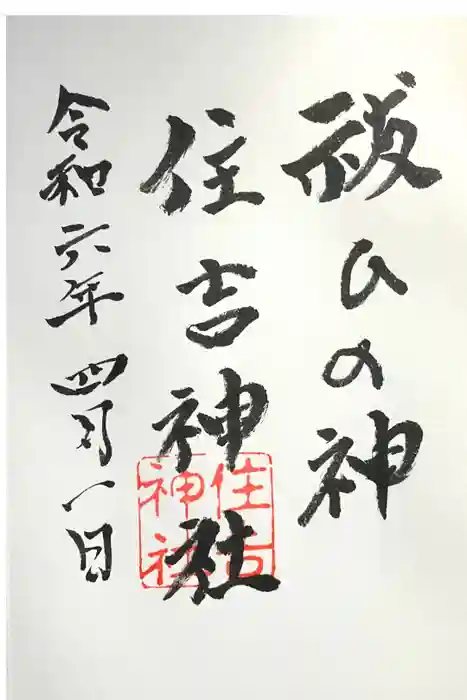 祓ひの神
住吉神社
令和六年四月一日
住吉
神社